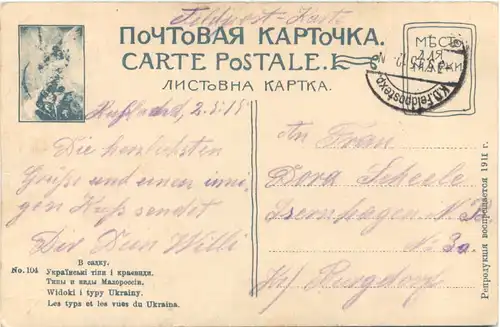 Feldpost-Karte
ПОЧТОВАЯ КАРТОЧКА.
CARTE POSTALE.
ЛИСТОВНА КАРТКА.
МѢСТО
ДЛЯ
МАРКИ
K.D.Feldpostexp.
Rußland, 2.5.18
Die herzlichsten
Grüße und einen inni-
gen Kuß sendet
Dir Dein Willi
An Frau
Dora Scheele
Isernhagen N.B.
No. 30.
Burgdorf
В садку.
No. 104
Українські тіпи і краєвиди.
Типы и виды Малороссіи.
Widoki i typy Ukrainy.
Les typs et les vues du Ukraina.
Репродукція воспрещается 1911 г.